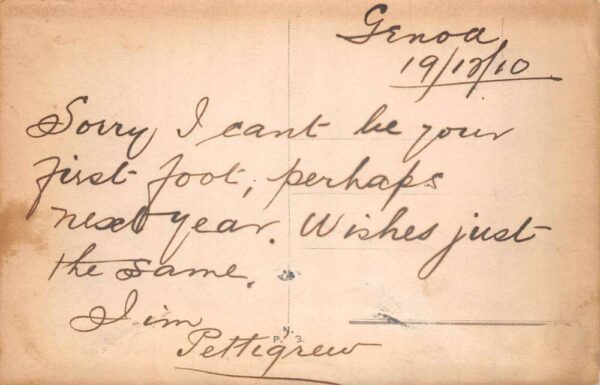 Genoa
19/12/10
Sorry I cant be your
first foot, perhaps
next year. Wishes just
the same.
Jim
Pettigrew